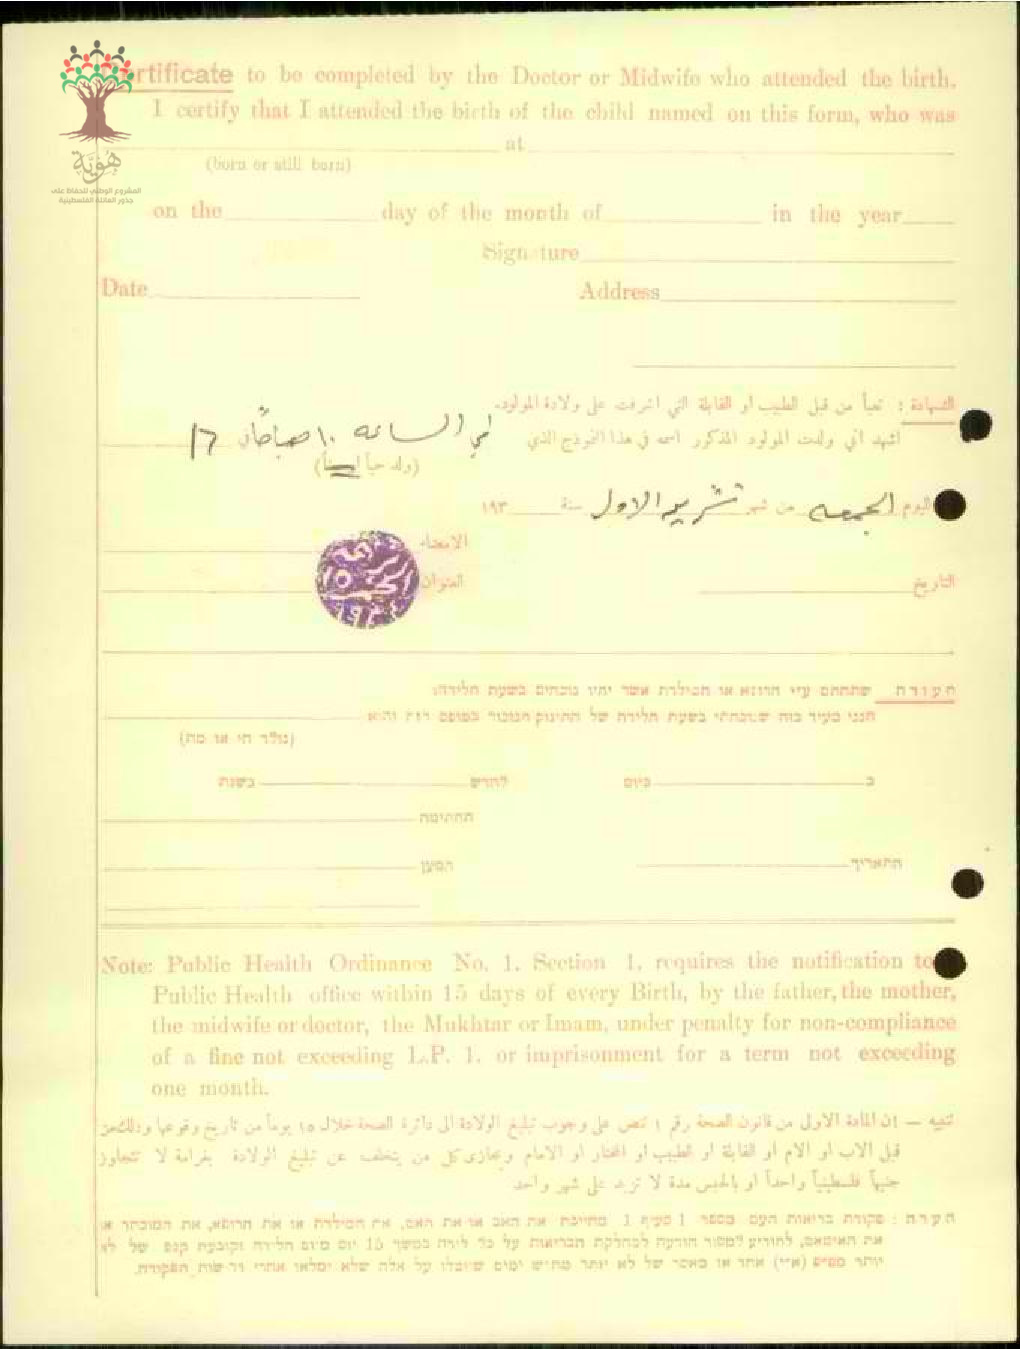 Certificate to be completed by the Doctor or Midwife who attended the birth.
I certify that I attended the birth of the child named on this form, who was
at
(born or still born)
هُوِيَّة
المشروع الوطني للحفاظ على
جذور العائلة الفلسطينية
on the day of the month of in the year
Signature
Date Address
الشهادة : تعبأ من قبل الطبيب او القابلة التي اشرفت على ولادة المولود.
اشهد اني ولدت المولود المذكور اسمه في هذا النموذج الذي في الساعه ١٠ صباحاً في ١٦
(ولد حياً او ميتاً)
اليوم الجمعه من شهر تشرين الاول سنة ١٩٣
الامضاء
التاريخ العنوان
העודה שתחתם ע״י הרופא או המילדת אשר יהיו נוכחים בשעת הלידה:
הנני מעיד בזה שנוכחתי בשעת הלידה של התינוק הנזכר בטופס הזה והוא
(נולד חי או מת)
ב ביום לחדש בשנת
החתימה
התאריך המען
Note: Public Health Ordinance No. 1. Section 1. requires the notification to
Public Health office within 15 days of every Birth, by the father, the mother,
the midwife or doctor, the Mukhtar or Imam, under penalty for non-compliance
of a fine not exceeding L.P. 1. or imprisonment for a term not exceeding
one month.
تنبيه – ان المادة الاولى من قانون الصحة رقم ١ تنص على وجوب تبليغ الولادة الى دائرة الصحة خلال ١٥ يوماً من تاريخ وقوعها وذلك من
قبل الاب او الام او القابلة او الطبيب او المختار او الامام ويجازى كل من يتخلف عن تبليغ الولادة بغرامة لا تتجاوز
جنيهاً فلسطينياً واحداً او بالحبس مدة لا تزيد على شهر واحد
הערה : פקודת בריאות העם מספר 1 סעיף 1 מחייבת את האב או את האם, את המילדת או את הרופא, את המוכתר או
את האימאם, להודיע למחלקת הבריאות על כל לידה במשך 15 יום מיום הלידה וקובעת קנס של לא
יותר אחד או מאסר של לא יותר